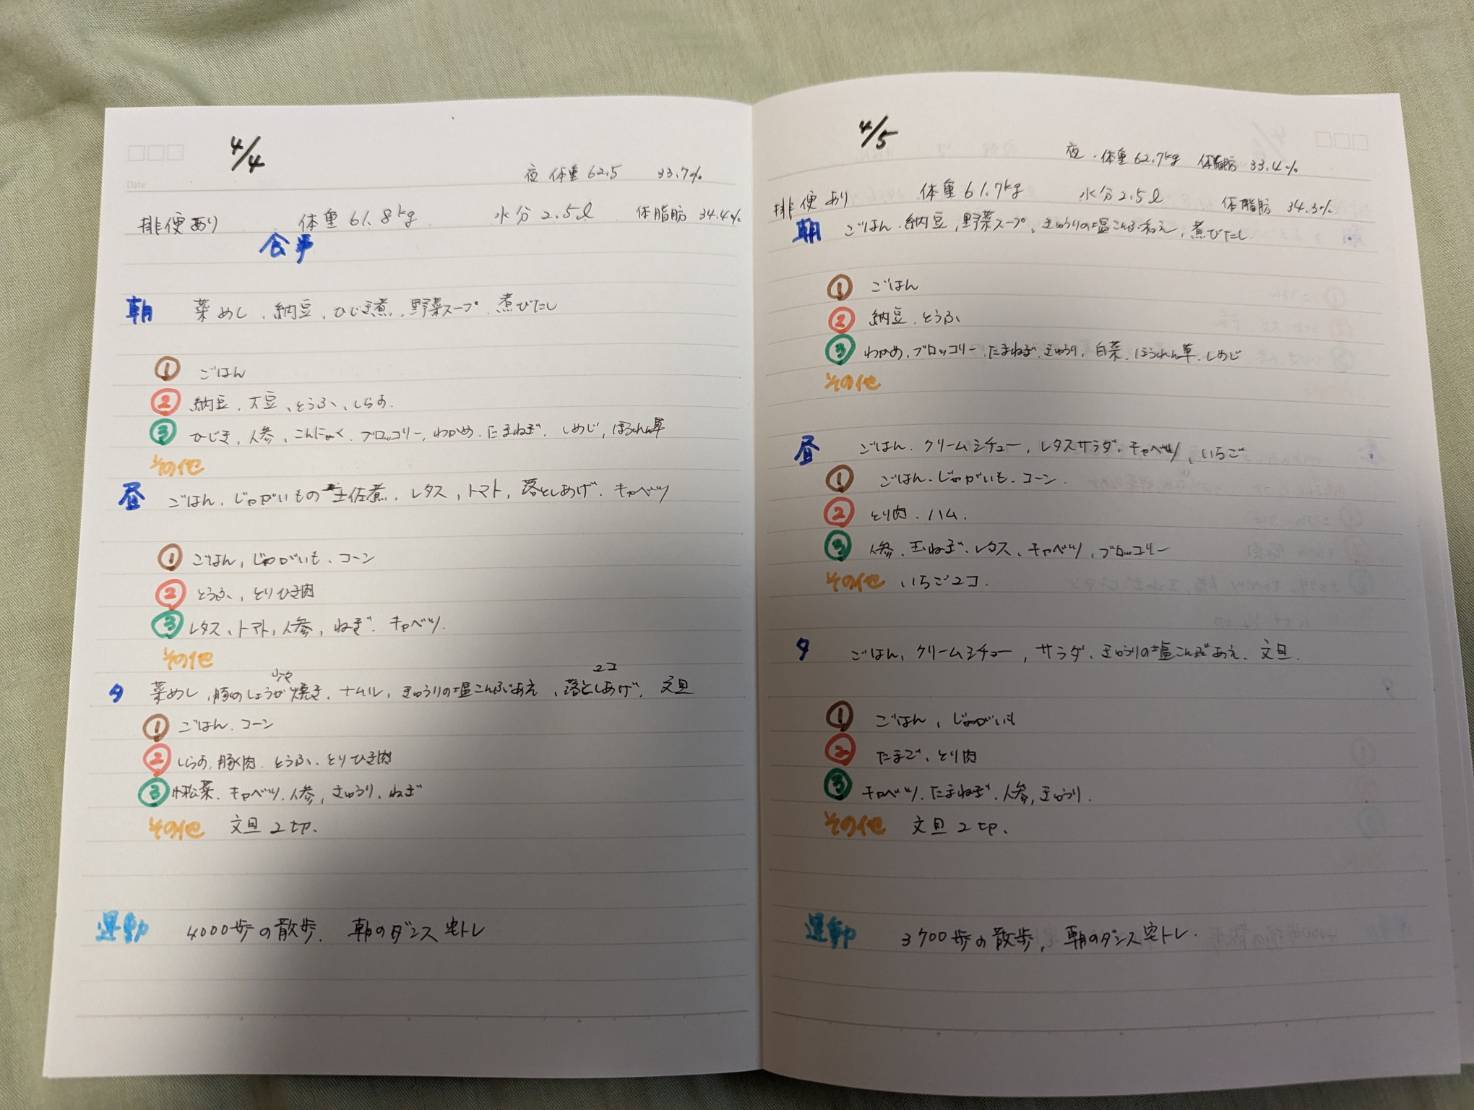 4/4
夜 体重62.5 33.7%
排便あり 体重61.8kg 水分2.5ℓ 体脂肪 34.4%
食事
朝 菜めし、納豆、ひじき煮、野菜スープ、煮びたし
① ごはん
② 納豆、大豆、とうふ、しらす
③ ひじき、人参、こんにゃく、ブロッコリー、わかめ、たまねぎ、しめじ、ほうれん草
その他
昼 ごはん、じゃがいもの土佐煮、レタス、トマト、落としあげ、キャベツ
① ごはん、じゃがいも、コーン
② とうふ、とりひき肉
③ レタス、トマト、人参、ねぎ、キャベツ
その他
夕 菜めし、豚のしょうが焼き、ナムル、きゅうりの塩こんぶあえ、落としあげ、文旦
2コ
① ごはん、コーン
② しらす、豚肉、とうふ、とりひき肉
③ 小松菜、キャベツ、人参、きゅうり、ねぎ
その他 文旦2切、
運動 4000歩の散歩、朝のダンス宅トレ
4/5
夜、体重62.7kg 体脂肪 33.4%
排便あり 体重61.7kg 水分2.5ℓ 体脂肪 34.3%
朝 ごはん、納豆、野菜スープ、きゅうりの塩こんぶ和え、煮びたし
① ごはん
② 納豆、とうふ
③ わかめ、ブロッコリー、たまねぎ、きゅうり、白菜、ほうれん草、しめじ
その他
昼 ごはん、クリームシチュー、レタスサラダ、キャベツ、いちご
① ごはん、じゃがいも、コーン
② とり肉、ハム、
③ 人参、玉ねぎ、レタス、キャベツ、ブロッコリー
その他 いちご2コ、
夕 ごはん、クリームシチュー、サラダ、きゅうりの塩こんぶあえ、文旦
① ごはん、じゃがいも
② たまご、とり肉
③ キャベツ、たまねぎ、人参、きゅうり、
その他 文旦2切、
運動 3700歩の散歩、朝のダンス宅トレ、